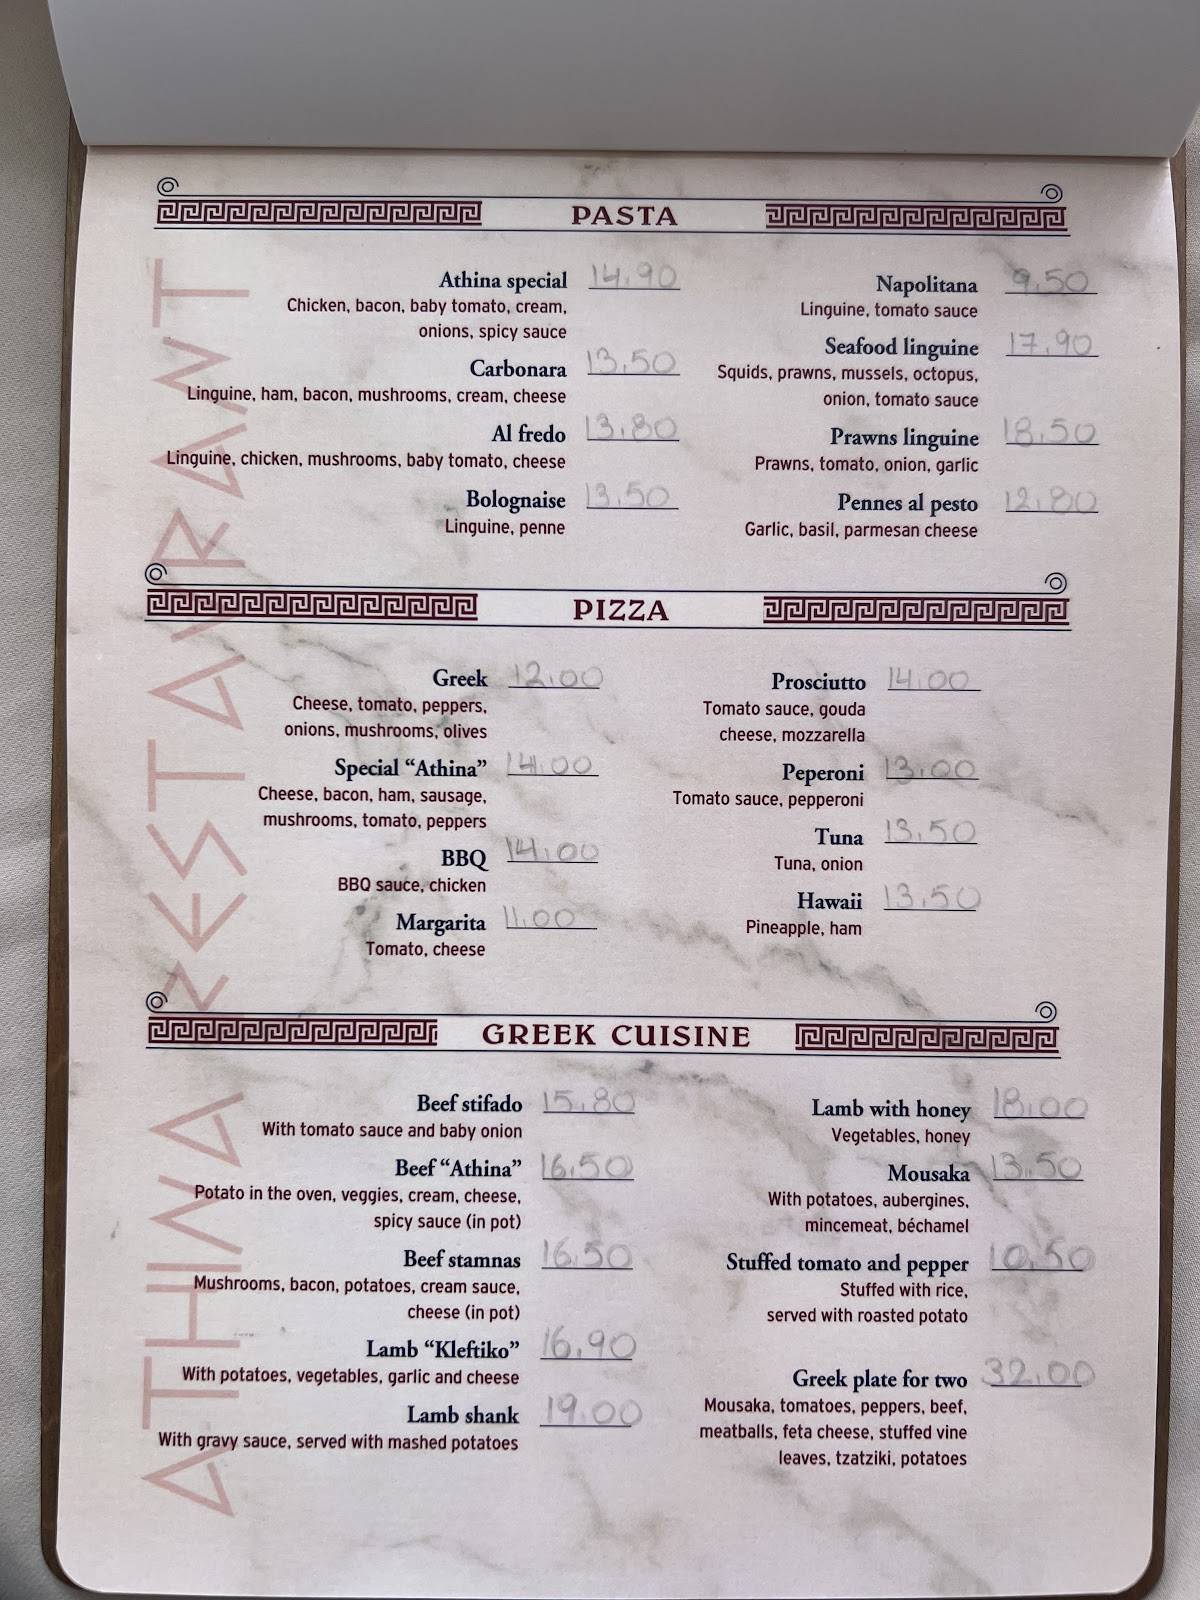 PASTA
Athina special 14.90
Chicken, bacon, baby tomato, cream,
onions, spicy sauce
Carbonara 13.50
Linguine, ham, bacon, mushrooms, cream, cheese
Al fredo 13.80
Linguine, chicken, mushrooms, baby tomato, cheese
Bolognaise 13.50
Linguine, penne
Napolitana 9.50
Linguine, tomato sauce
Seafood linguine 17.90
Squids, prawns, mussels, octopus,
onion, tomato sauce
Prawns linguine 18.50
Prawns, tomato, onion, garlic
Pennes al pesto 12.80
Garlic, basil, parmesan cheese
PIZZA
Greek 12.00
Cheese, tomato, peppers,
onions, mushrooms, olives
Special “Athina” 14.00
Cheese, bacon, ham, sausage,
mushrooms, tomato, peppers
BBQ 14.00
BBQ sauce, chicken
Margarita 11.00
Tomato, cheese
Prosciutto 14.00
Tomato sauce, gouda
cheese, mozzarella
Peperoni 13.00
Tomato sauce, pepperoni
Tuna 13.50
Tuna, onion
Hawaii 13.50
Pineapple, ham
GREEK CUISINE
Beef stifado 15.80
With tomato sauce and baby onion
Beef “Athina” 16.50
Potato in the oven, veggies, cream, cheese,
spicy sauce (in pot)
Beef stamnas 16.50
Mushrooms, bacon, potatoes, cream sauce,
cheese (in pot)
Lamb “Kleftiko” 16.90
With potatoes, vegetables, garlic and cheese
Lamb shank 19.00
With gravy sauce, served with mashed potatoes
Lamb with honey 18.00
Vegetables, honey
Mousaka 13.50
With potatoes, aubergines,
mincemeat, béchamel
Stuffed tomato and pepper 10.50
Stuffed with rice,
served with roasted potato
Greek plate for two 32.00
Mousaka, tomatoes, peppers, beef,
meatballs, feta cheese, stuffed vine
leaves, tzatziki, potatoes
ATHINA RESTAVRANT